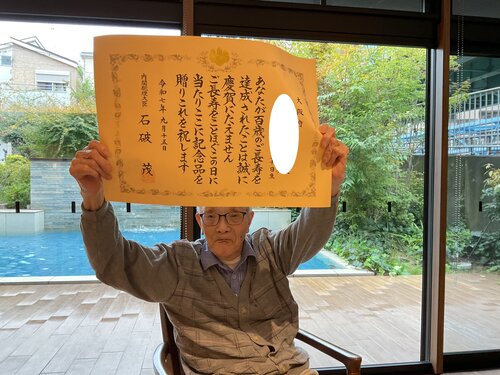 大阪府
あなたが百歳のご長寿を
達成されたことは誠に
慶賀にたえません
ご長寿をことほぐこの日に
当たりここに記念品を
贈りこれを祝します
令和七年九月十五日
内閣総理大臣 石破 茂